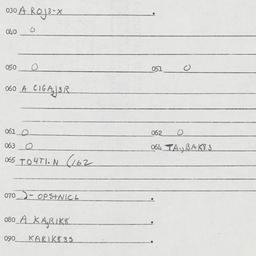 030 A ROJ3-X .
040 0
050 0 051 0
060 A CIGA,JSR
061 0 062 0
063 0 064 TA,BAK83
065 TO4TI.N (162
070 2-OPS+NICL .
080 A KA,RIKE .
090 KARIKE33 .